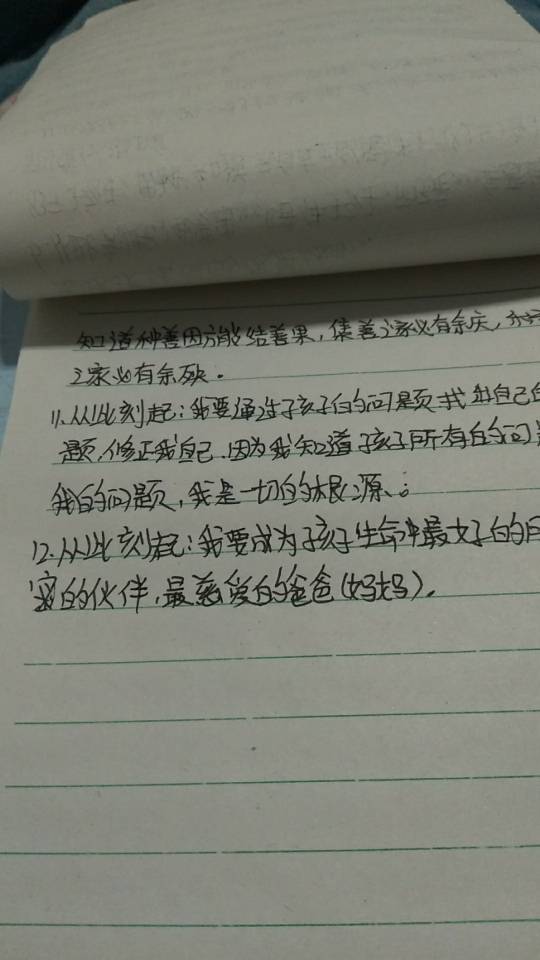 知道种善因方能结善果，集善之家必有余庆，
之家必有余殃.
11.从此刻起：我要通过孩子的问题找出自己
题，修正我自己.因为我知道孩子所有的问
我的问题，我是一切的根源.
12.从此刻起：我要成为孩子生命中最好的
密的伙伴，最慈爱的爸爸(妈妈).